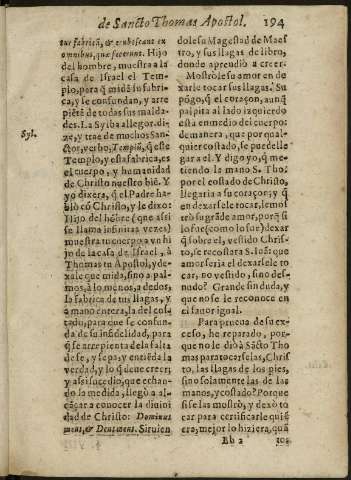 de Sancto Thomas Apostol. 194
tur fabricã, & erubescant ex
omnibus, quæ fecerunt. Hijo
del hombre, muestra a la
casa de Israel el Tem-
plo, para q̃ midã su fabri-
ca, y se confundan, y arre
piẽtã de todas sus malda-
des. La Syl.ba allegor.di-
ze, y trae de muchos San-
ctos, verbo, Templũ, q̃ este
Templo, y esta fabrica, es
el cuerpo, y humanidad
de Christo nuestro biẽ. Y
yo dixera, q̃ el Padre ha-
blò cõ Christo, y le dixo:
Hijo del hõbre (que assi
se llama infinitas vezes)
muestra tu cuerpo a vn hi
jo de la casa de Israel, â
Thomas tu Apostol, y de-
xale que mida, sino a pal-
mos, â lo menos, a dedos,
la fabrica de tus llagas, y
a mano entera, la del cos-
tado, para que se confun-
da de su infidelidad, para
q̃ se arrepienta de la falta
de fe, y sepa, y entiẽda la
verdad, y lo q̃ deue creer;
y assi sucedio, que echan-
do la medida, llegò a al-
cãçar a conocer la diuini
dad de Christo: Dominus
meus, & Deus meus. Siruien
Syl.
dole su Magestad de Maes
tro, y sus llagas de libro,
donde aprendio a creer.
Mostròle su amor en de
xarle tocar sus llagas. Su
põgo, q̃ el coraçon, aunq̃
palpita al lado izquierdo
està en medio del cuerpo:
de manera, que por qual-
quier costado, se puede lle
gar a el. Y digo yo, q̃ me-
tiendo la mano S. Tho.
por el costado de Christo,
llegaria a su coraçon; y q̃
en dexarsele tocar, le mos
trò su grãde amor, porq̃ si
lo fue (como lo fue) dexar
q̃ sobre el, vestido Chris-
to, se recostara S. Iuã: que
amor seria el dexarsele to
car, no vestido, sino des-
nudo? Grande sin duda, y
que no se le reconoce en
el fauor igual.
Para prueua de su ex-
ceso, he reparado, por-
que no le diò à Sãcto Tho
mas para tocarselas, Chris
to, las llagas de los pies,
sino solamente las de las
manos, y costado? Porque
si se las mostrò, y dexò to
car para certificarle quiẽ
era, mejor lo hiziera, quã
Bb 2 tos